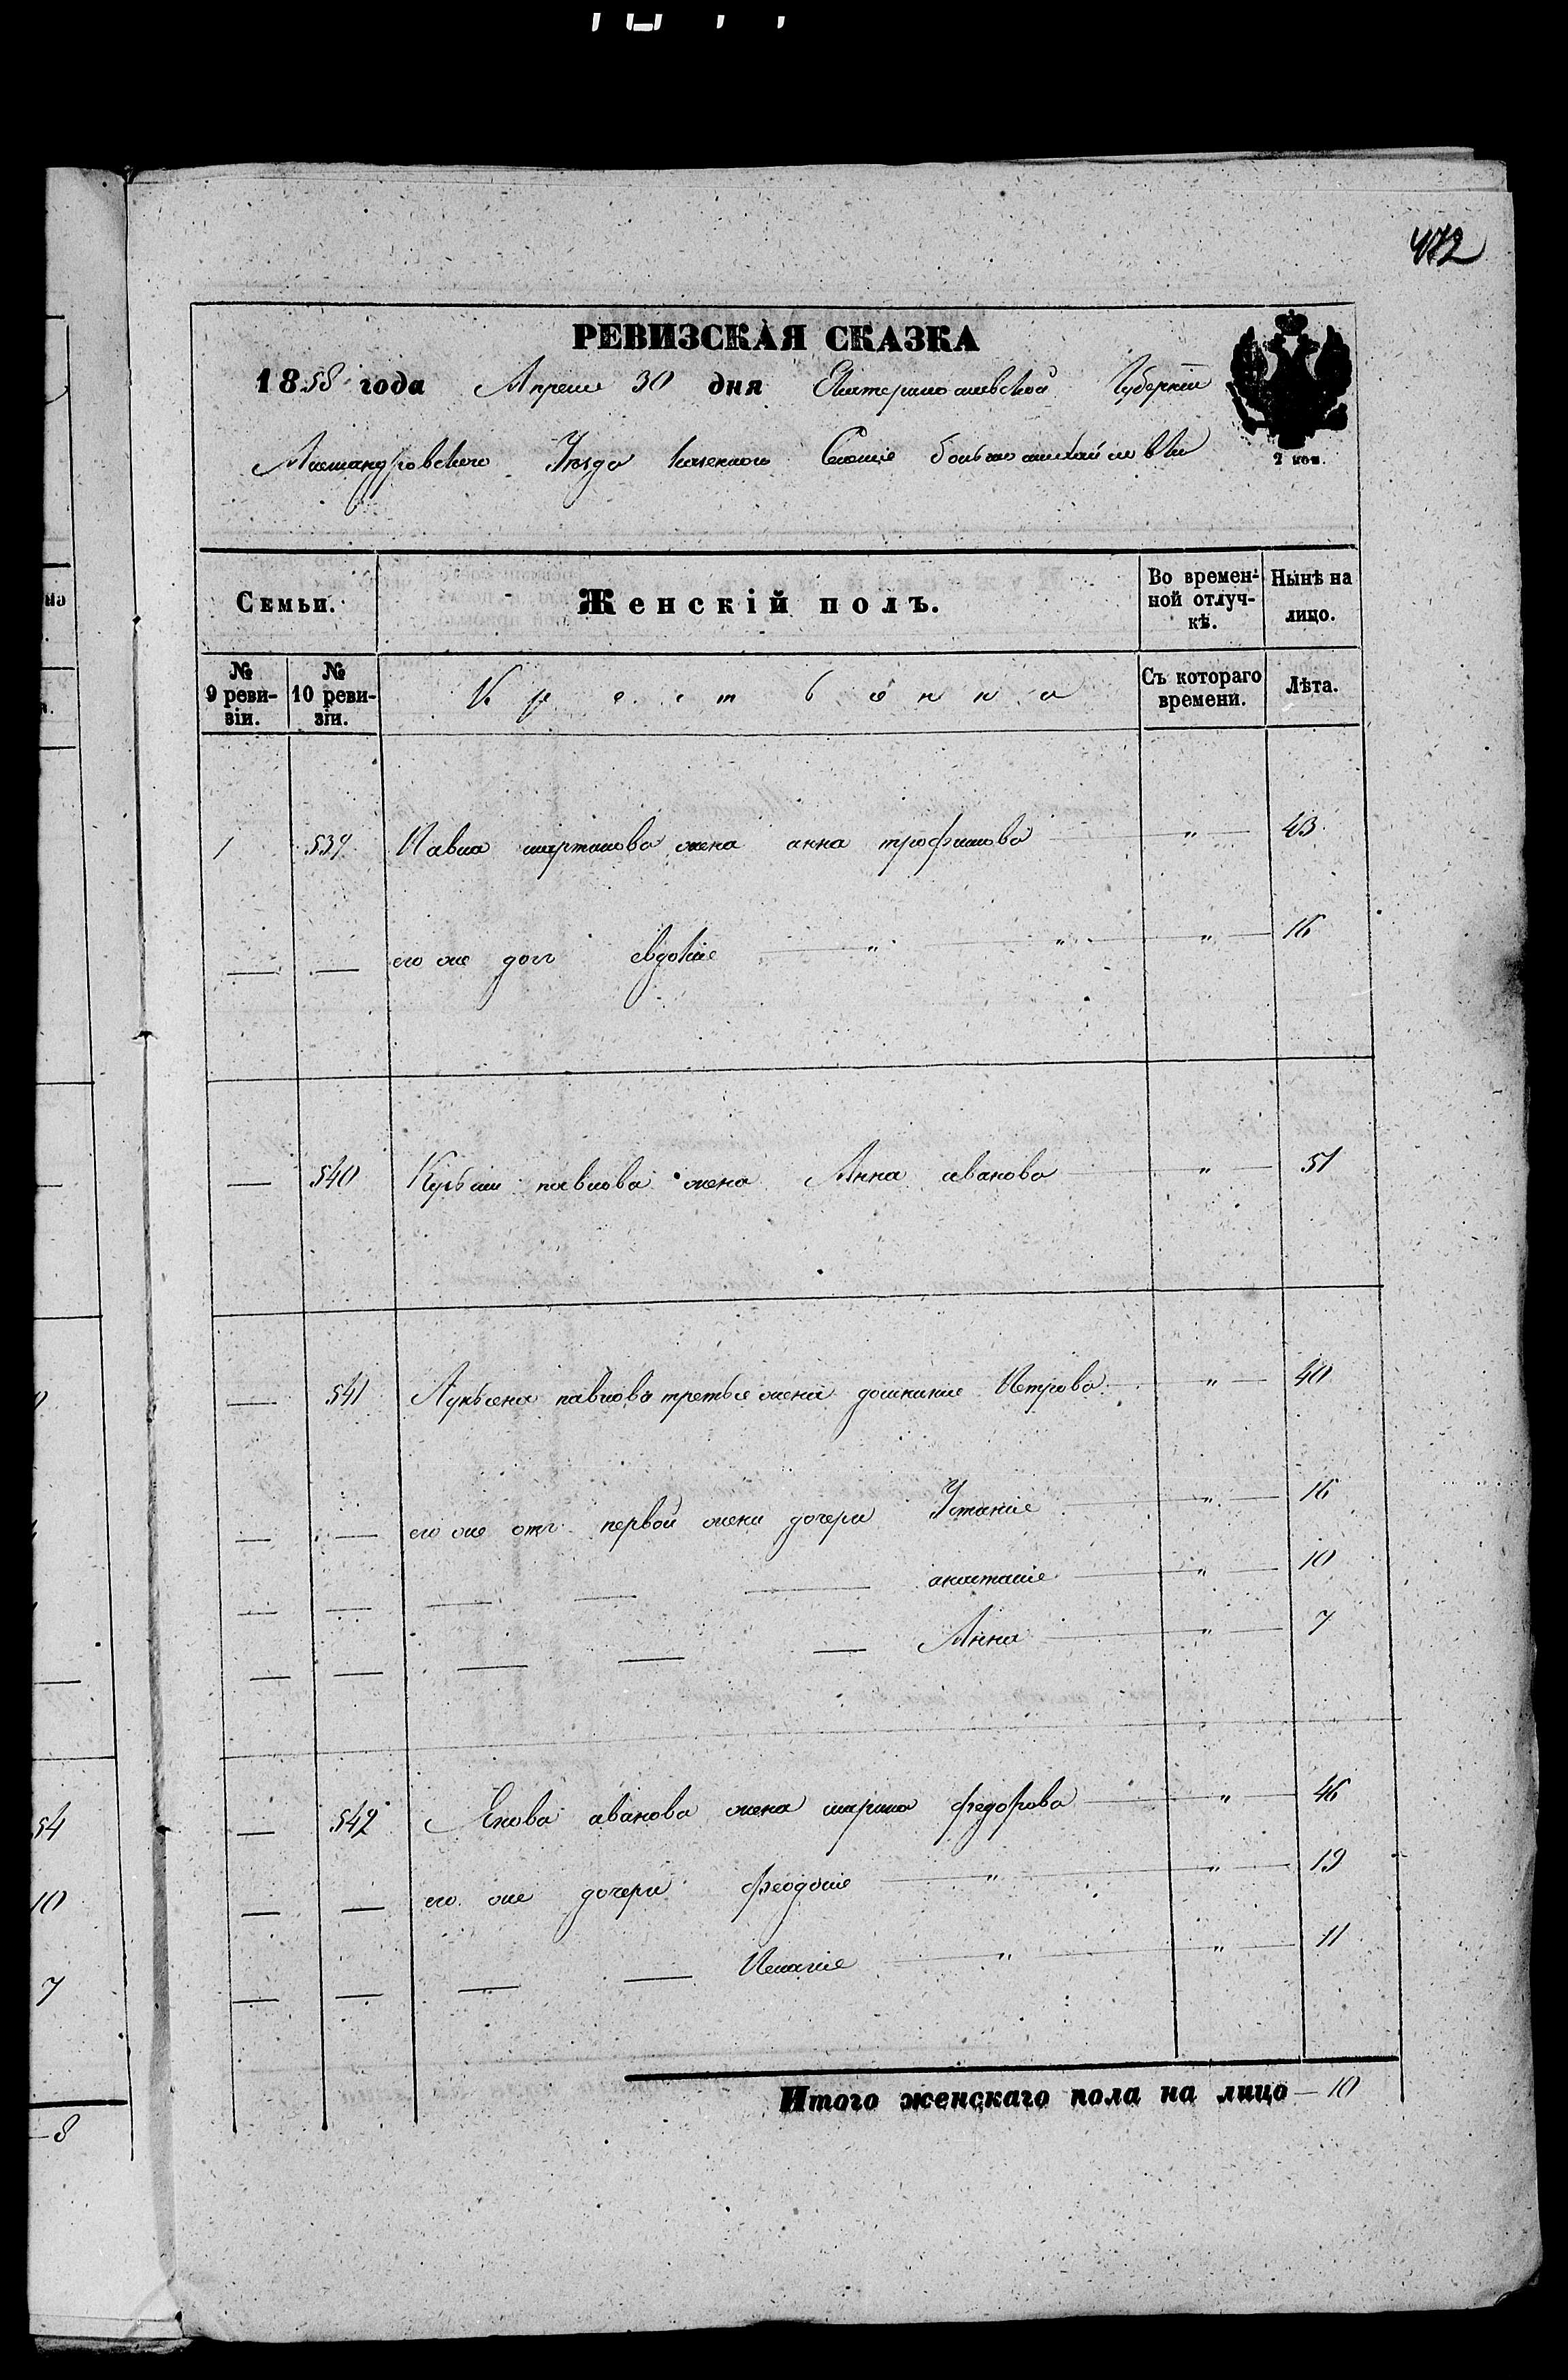 472
РЕВИЗСКАЯ СКАЗКА
1858 года Апреля 30 дня Екатеринославской Губернiи
Александровскаго Уезда казеннаго Селенiя большомихайловки
2 коп.
Семьи. Женскiй полъ. Во времен- Нынѣ на
ной отлуч- лицо.
кѣ.
№ № Крестьянка Съ котораго Лѣта.
9 реви- 10 реви- времени.
зiи. зiи.
1 539 Павла мартынова жена анна трофимова — " — 43
— — его же дочь евдокiя — " — " — " — 16
— 540 Кузьмы павлова жена Анна иванова — " — 51
— 541 Лукьяна павлова третья жена Петрова — " — 40
— — его же отъ первой жены дочери Устинiя — " — 16
— — — — — анастасiя — " — 10
— — — — — Анна — " — 7
— 542 Якова иванова жена марина федорова — " — 46
— — его же дочери феодосiя — " — " — 19
— — — — Пелагiя — " — " — 11
Итого женскаго пола на лицо — 10
54
10
7
— 8